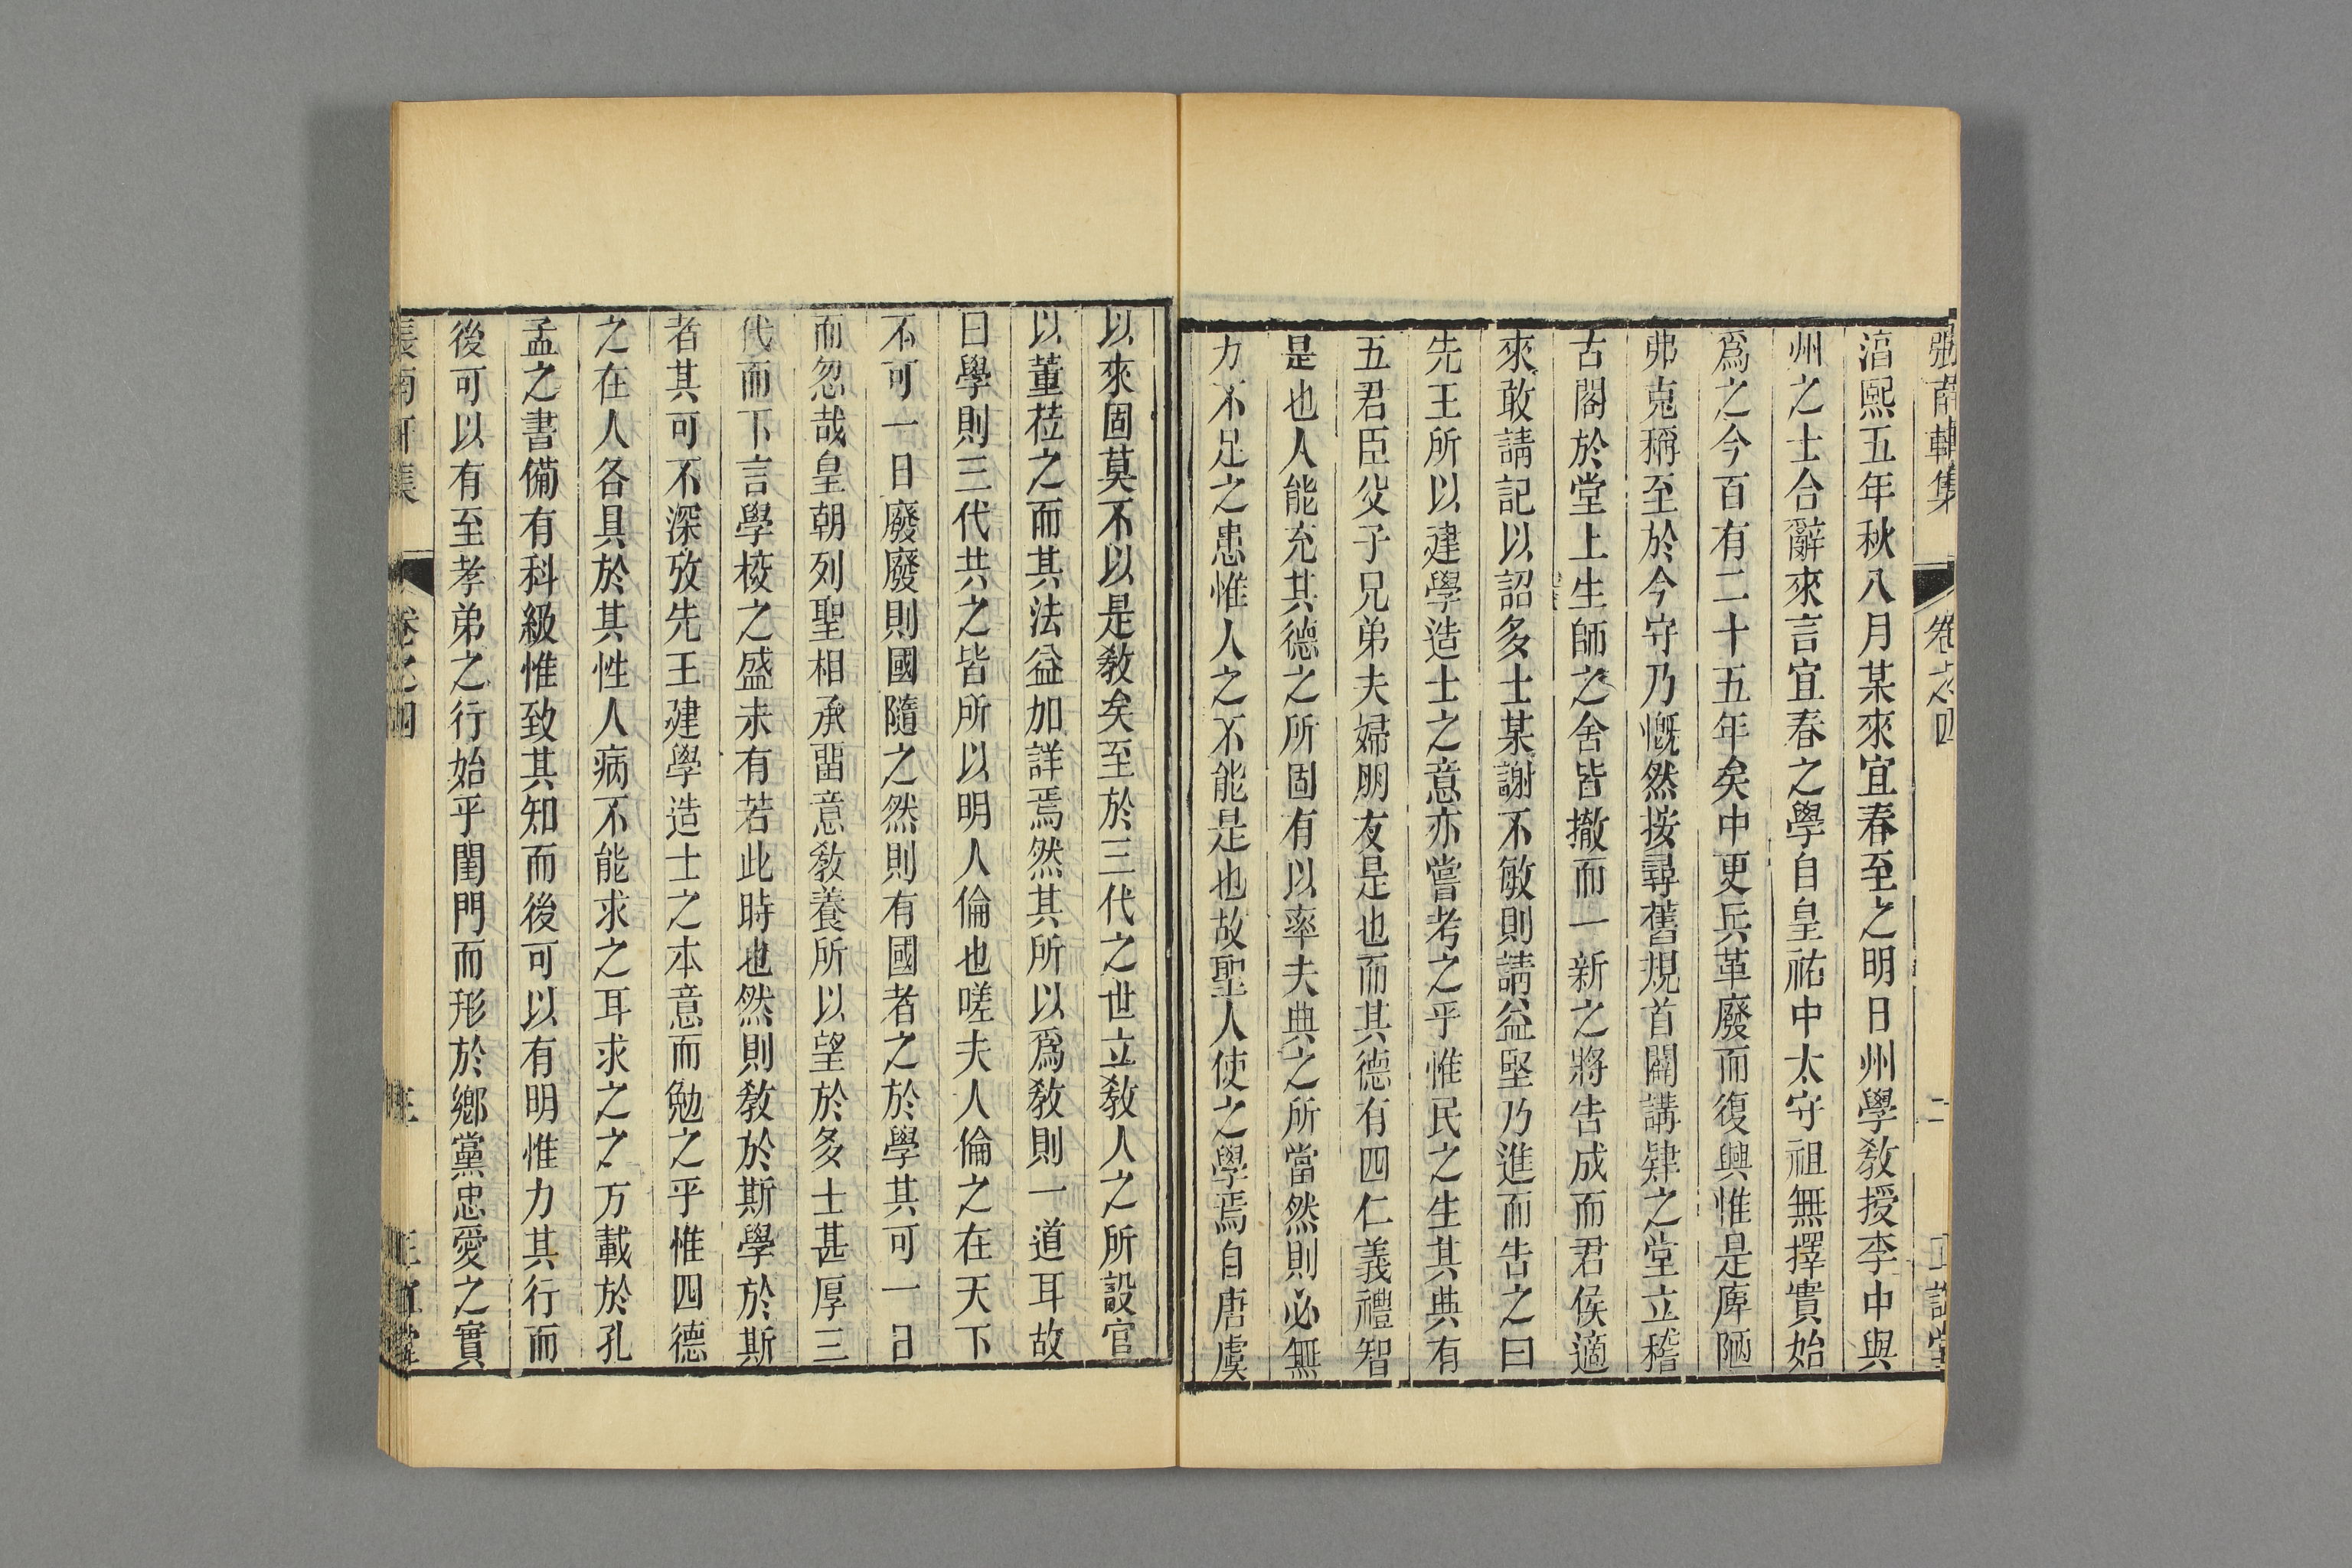 張南軒集 卷之四 二 正誼堂
湻熙五年秋八月某來宜春至之明日州學敎授李中與
州之士合辭來言宜春之學自皇祐中太守祖無擇實始
爲之今百有二十五年矣中更兵革廢而復興惟是庳陋
弗克稱至於今守乃慨然按尋舊規首闢講肄之堂立稽
古閣於堂上生師之舍皆撤而一新之將告成而君侯適
來敢請記以詔多士某謝不敏則請益堅乃進而告之曰
先王所以建學造士之意亦嘗考之乎惟民之生其典有
五君臣父子兄弟夫婦朋友是也而其德有四仁義禮智
是也人能充其德之所固有以率夫典之所當然則必無
力不足之患惟人之不能是也故聖人使之學焉自唐虞
以來固莫不以是敎矣至於三代之世立敎人之所設官
以董莅之而其法益加詳焉然其所以爲敎則一道耳故
曰學則三代共之皆所以明人倫也嗟夫人倫之在天下
不可一日廢廢則國隨之然則有國者之於學其可一日
而忽哉皇朝列聖相承畱意敎養所以望於多士甚厚三
代而下言學校之盛未有若此時也然則敎於斯學於斯
者其可不深攷先王建學造士之本意而勉之乎惟四德
之在人各具於其性人病不能求之耳求之之方載於孔
孟之書備有科級惟致其知而後可以有明惟力其行而
後可以有至孝弟之行始乎閨門而形於鄕黨忠愛之實
張南軒集 卷之四 正誼堂